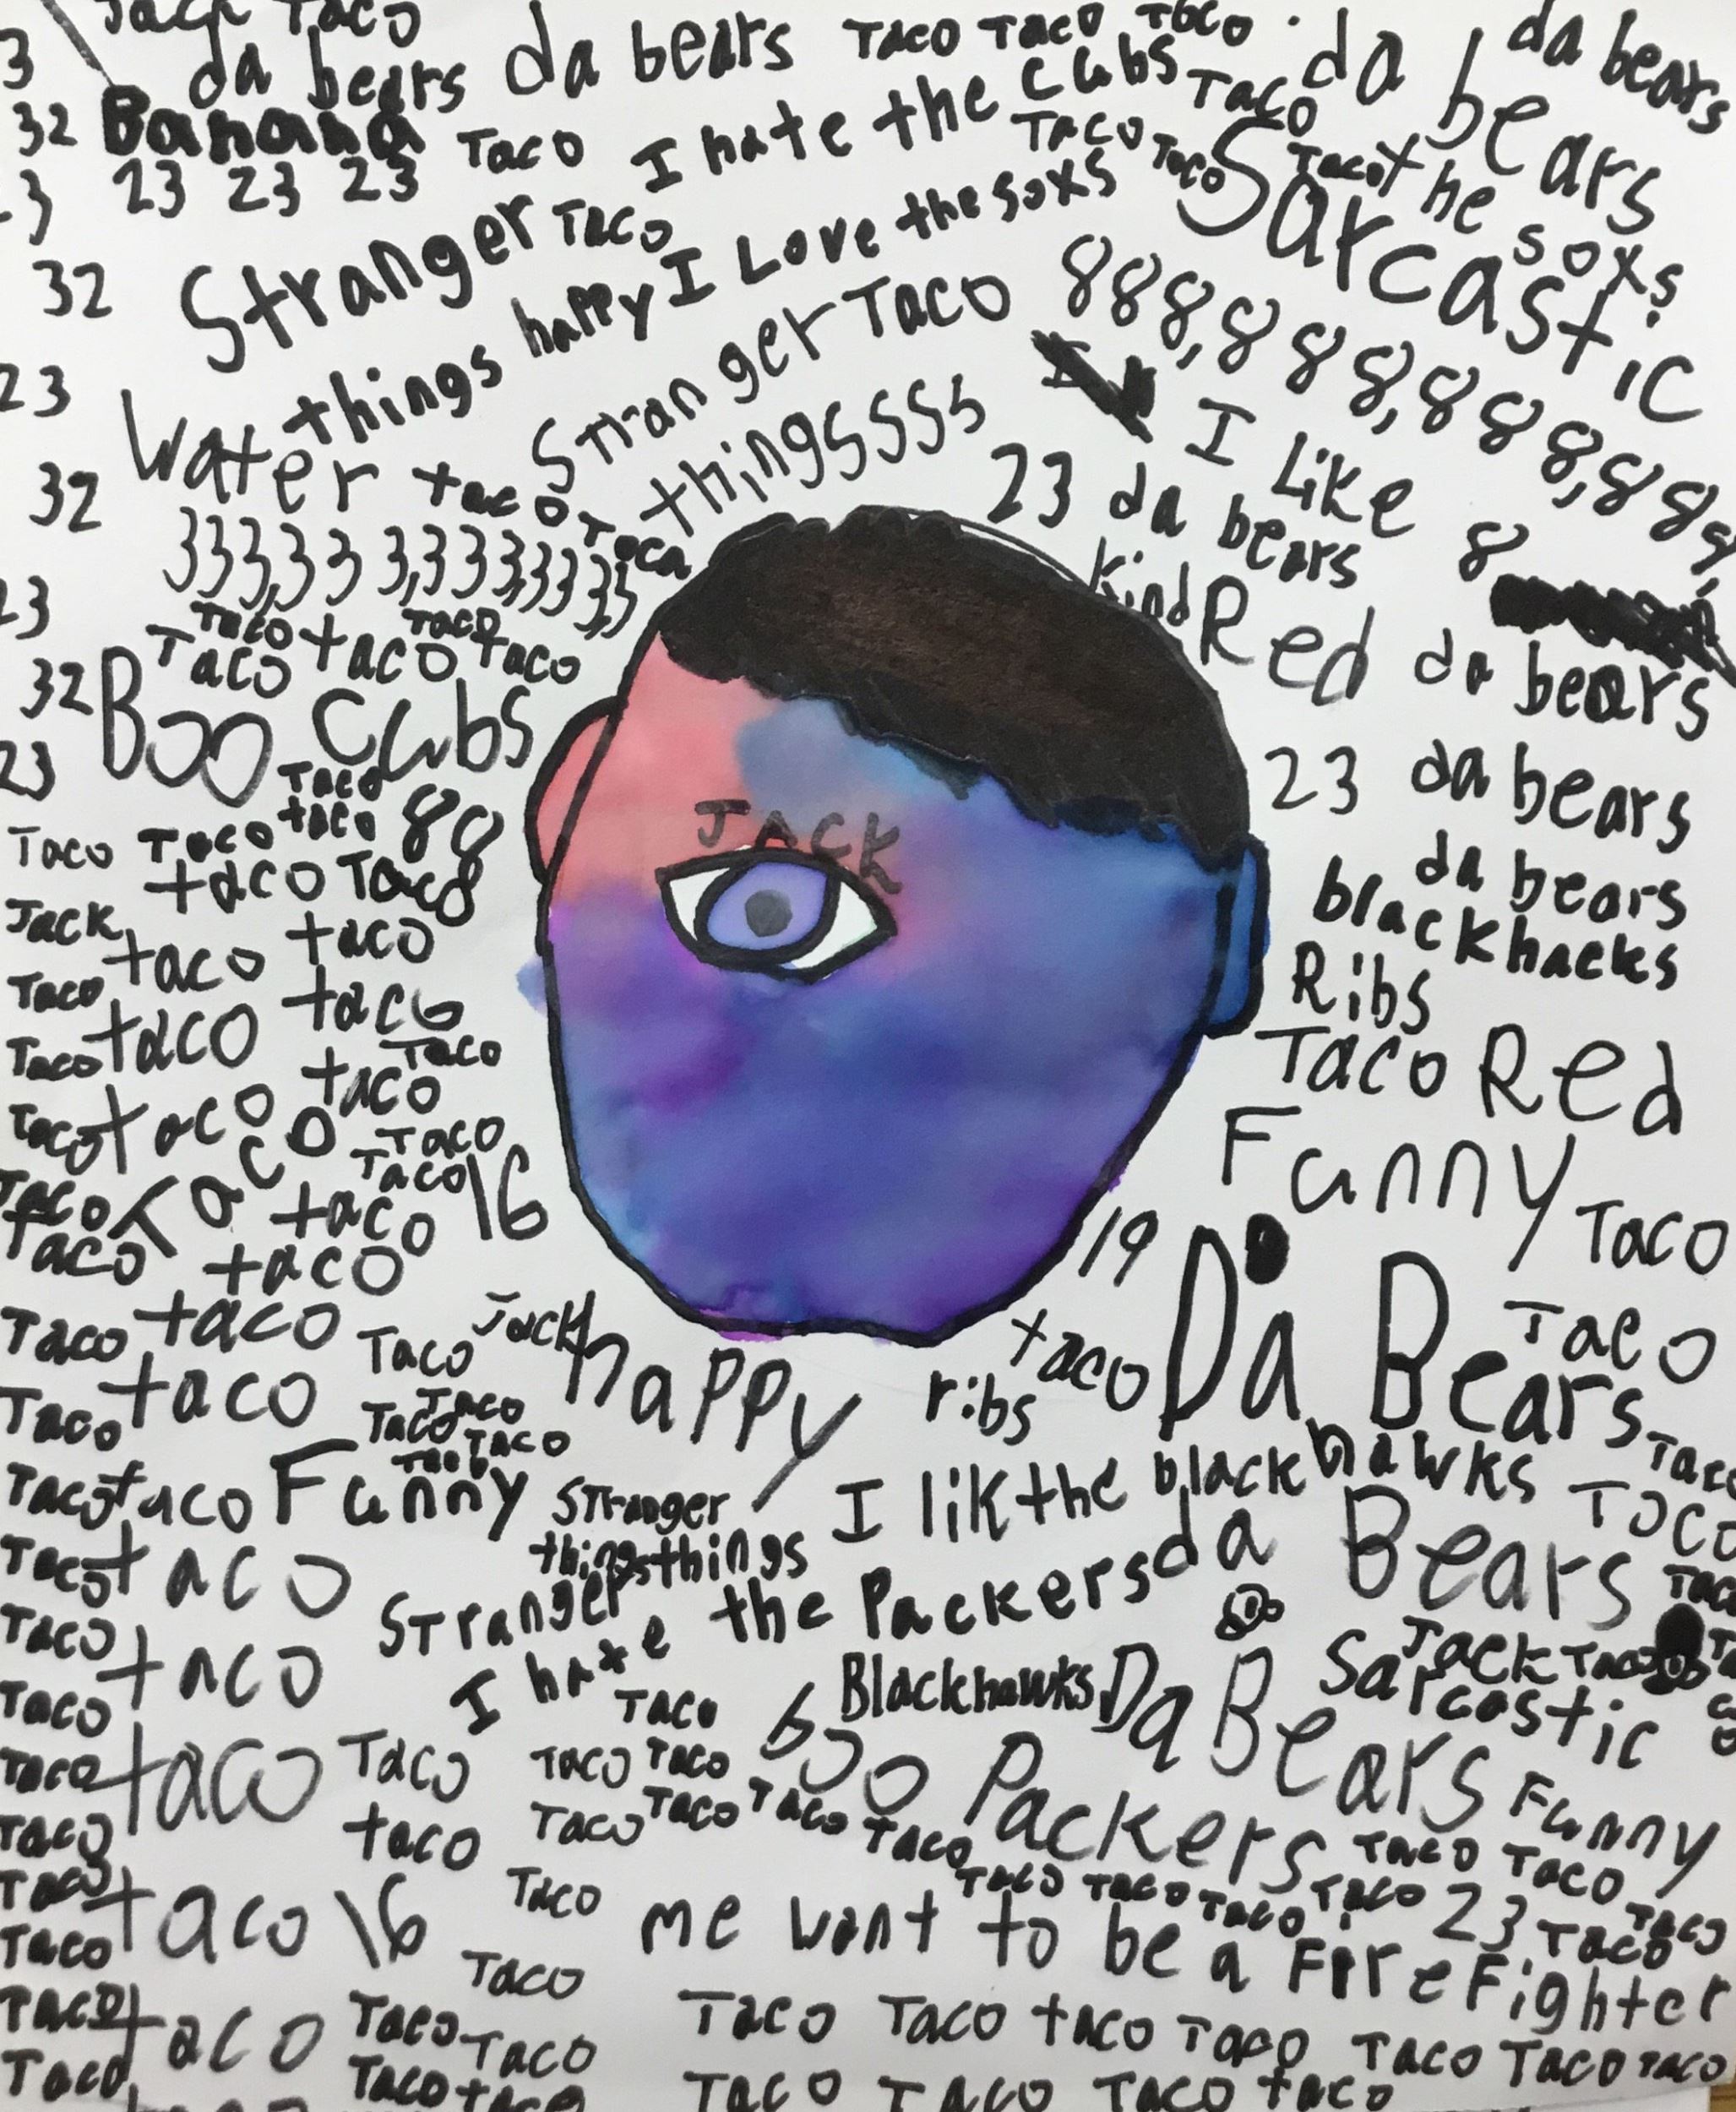 Jack Taco
3 da bears da bears Taco Taco Taco da bears da bears
32 Banana Taco I hate the Cubs Taco
23 23 23 Taco Taco Taco the soxs
32 Stranger Taco I Love the soxs Sarcastic
things happy
23 Water Stranger Taco 888,888,888,888,
32 taco Taco thingsssss I Like 8
333,333,333,333,333 23 da bears
23 Taco Taco kind Red da bears
Taco taco taco
32 Boo Cubs
23 Taco 23 da bears
Taco Taco taco 88 JACK da bears
taco Taco blackhacks
Jack taco Ribs
Taco taco taco Taco Red
Taco taco Taco
taco Funny
Taco taco Taco
Taco Taco Taco 16 Taco
Taco taco 19
taco Da Bears
Taco taco Jack taco Taco
Taco happy ribs
Taco taco Taco Taco Taco
Taco Taco
Taco taco Funny Stranger I lik the blackhawks Taco
things things da Bears
Taco taco Stranger Taco
I hate the Packers
Taco taco Jack Taco
Taco Taco Blackhawks Da Bears Sarcastic
Taco taco Taco Taco Taco boo Packers Funny
Taco taco Taco Taco Taco Taco Taco Taco
Taco Taco Taco Taco Taco 23 Taco Taco
Taco taco 16 Taco me want to be a FireFighter
Taco Taco
Taco taco Taco Taco Taco Taco taco Taco Taco Taco Taco
Taco Taco taco Taco Taco Taco taco